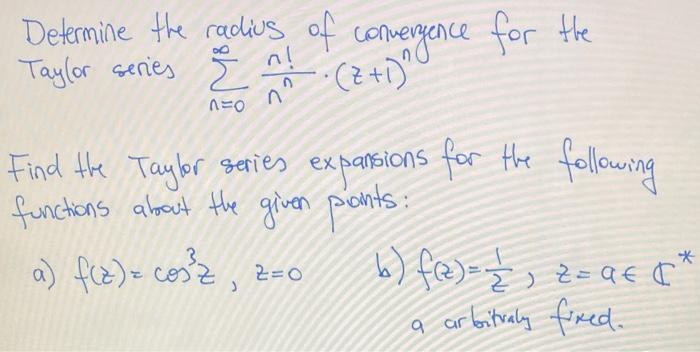 Determine the radius of convergence for the
Taylor series ∞∑n=0 n!/nⁿ · (z+1)ⁿ
Find the Taylor series expansions for the following
functions about the given points:
a) f(z) = cos³z, z=0 b) f(z) = 1/z, z=a∈ ℂ*
a arbitraly fixed.